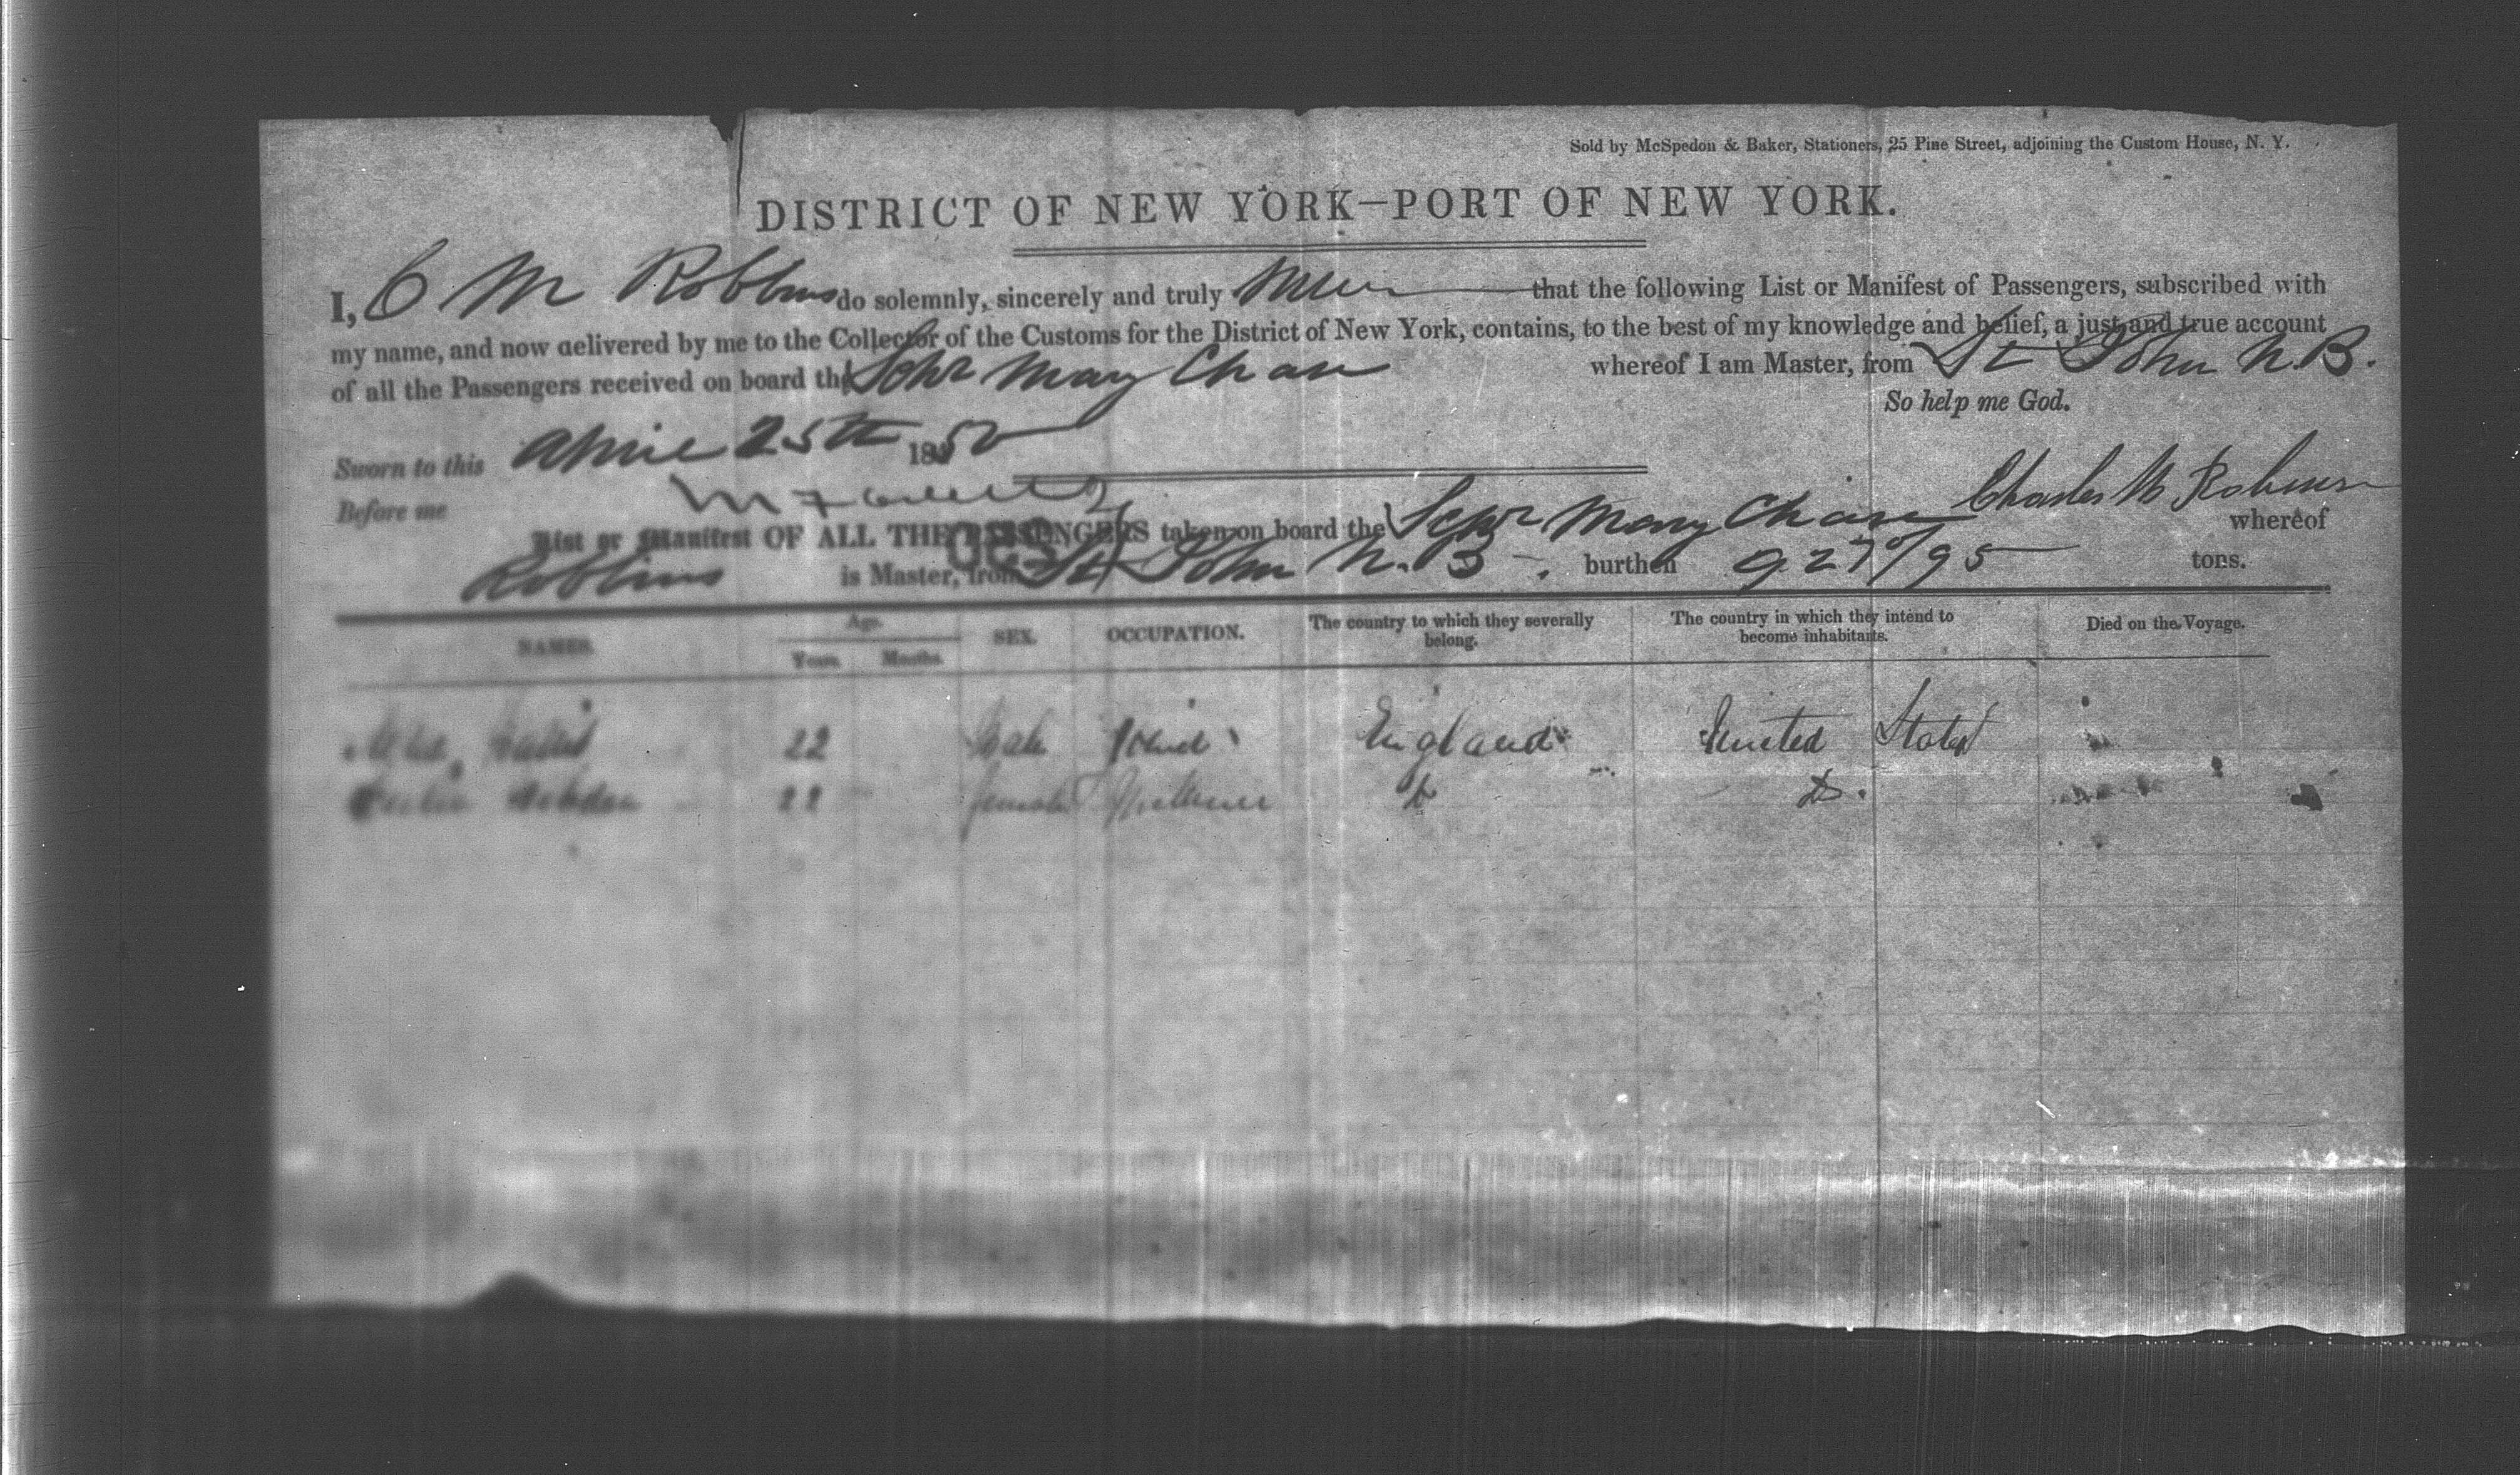 Sold by McSpedon & Baker, Stationers, 25 Pine Street, adjoining the Custom House, N. Y.
DISTRICT OF NEW YORK—PORT OF NEW YORK.
I, C M Robbins do solemnly, sincerely and truly that the following List or Manifest of Passengers, subscribed with
my name, and now delivered by me to the Collector of the Customs for the District of New York, contains, to the best of my knowledge and belief, a just and true account
of all the Passengers received on board the Schr Mary Chase whereof I am Master, from St John N.B.
So help me God.
Sworn to this April 25th 1850
Before me
Charles M Robbins
List or Manifest OF ALL THE PASSENGERS taken on board the Schr Mary Chase whereof
Robbins is Master, from St John N.B. burthen tons.
NAMES. Age. Years. Months. SEX. OCCUPATION. The country to which they severally belong. The country in which they intend to become inhabitants. Died on the Voyage.
22 England United States
22 female Milliner Do Do.